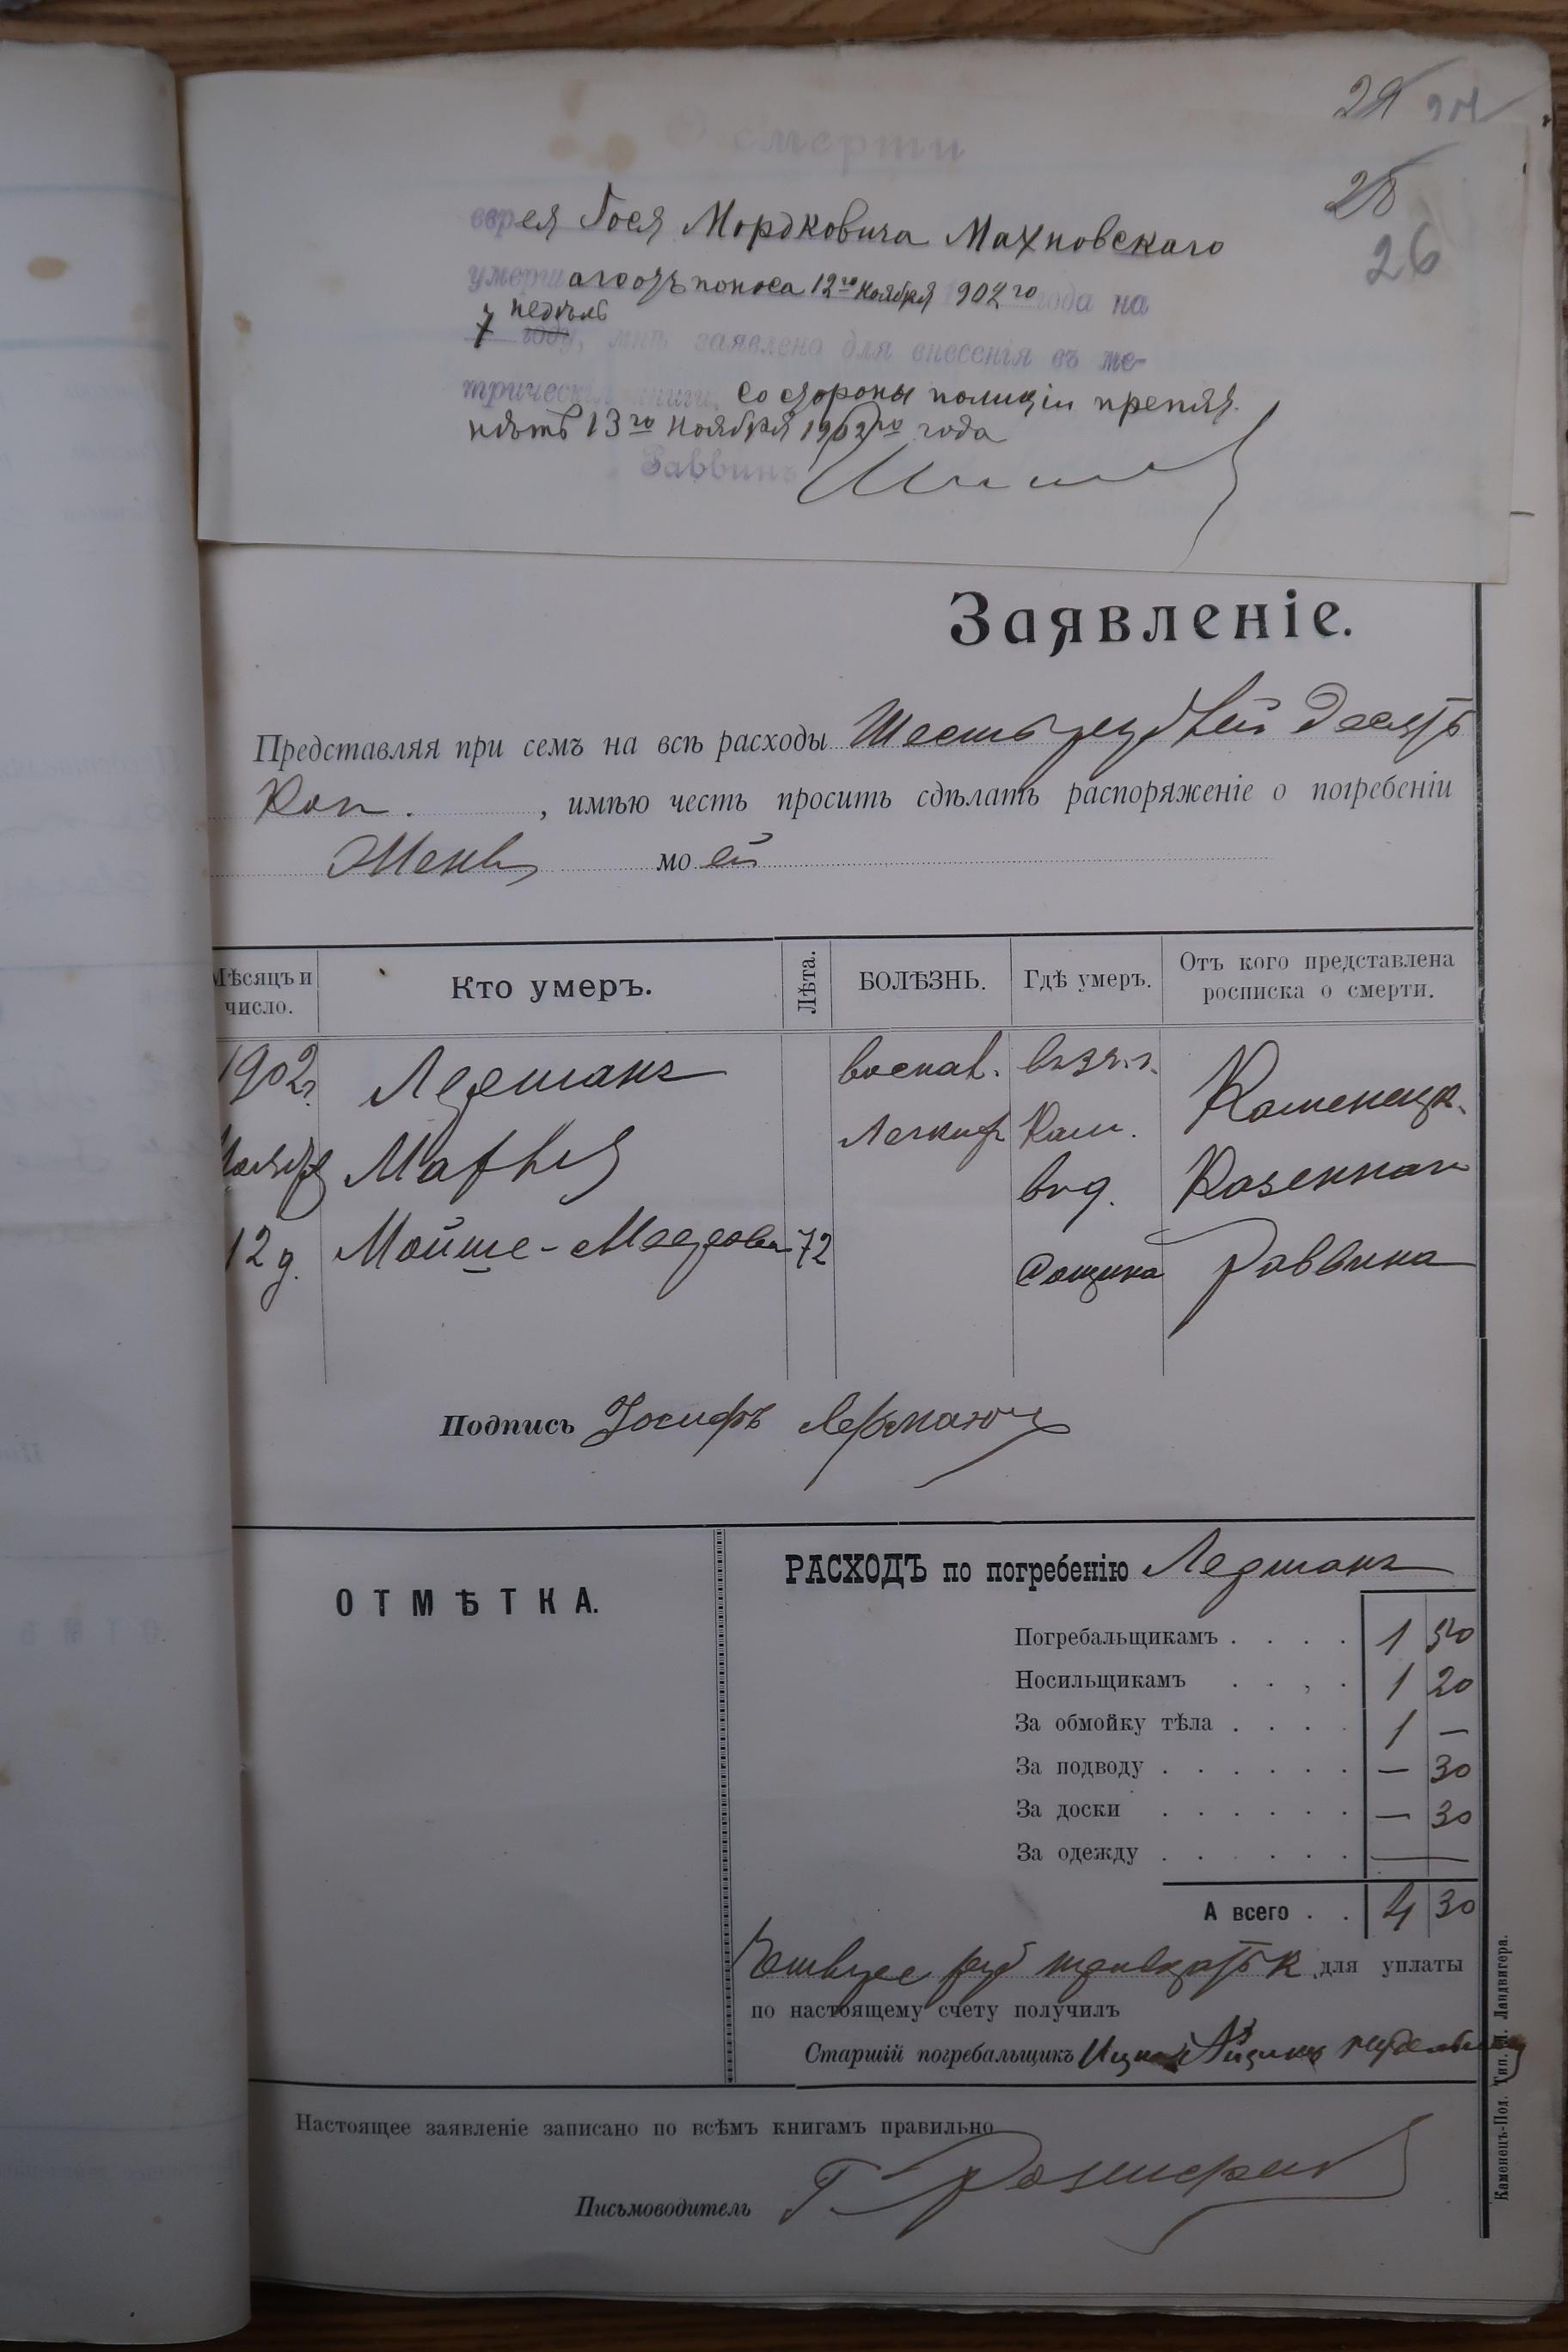 29
28
26
О смерти
еврея Гося Мордковича Махновскаго
умершаго отъ поноса 12го ноября 1902го года на
7 недѣль году, мнѣ заявлено для внесенія въ ме-
трическія книги. Со стороны полиціи препят.
нѣтъ 13го ноября 1902го года
Раввинъ
Заявленіе.
Представляя при семъ на всѣ расходы Шесть рублей десять
Коп. , имѣю честь просить сдѣлать распоряженіе о погребеніи
мо ей
Мѣсяцъ и число.
Кто умеръ.
Лѣта.
БОЛѢЗНЬ.
Гдѣ умеръ.
Отъ кого представлена росписка о смерти.
1902г.
Ноября
12 д.
Лерманъ
Мойше-
72
воспал.
Легких
Кам.
Каменецк.
Казеннаго
Раввина
Подпись Іосифъ Лерманъ
ОТМѢТКА.
РАСХОДЪ по погребенію Лерманъ
Погребальщикамъ . . . . 1 50
Носильщикамъ . . . . 1 20
За обмойку тѣла . . . . 1 —
За подводу . . . . . . — 30
За доски . . . . . . — 30
За одежду . . . . . . —
А всего . . 4 30
Четыре руб тридцать к. для уплаты
по настоящему счету получилъ
Старшій погребальщикъ Ицко
Настоящее заявленіе записано по всѣмъ книгамъ правильно
Письмоводитель Г
Каменецъ-Под. Тип. М. Ландвигера.